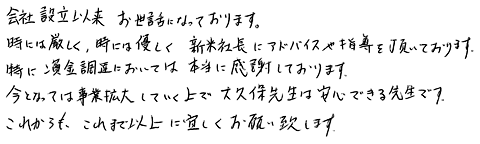 会社設立以来 お世話になっております。
時には厳しく、時には優しく 新米社長にアドバイスや指導を頂いております。
特に資金調達においては 本当に感謝しております。
今となっては事業拡大していく上で 大久保先生は安心できる先生です。
これからも、これまで以上に宜しくお願い致します。